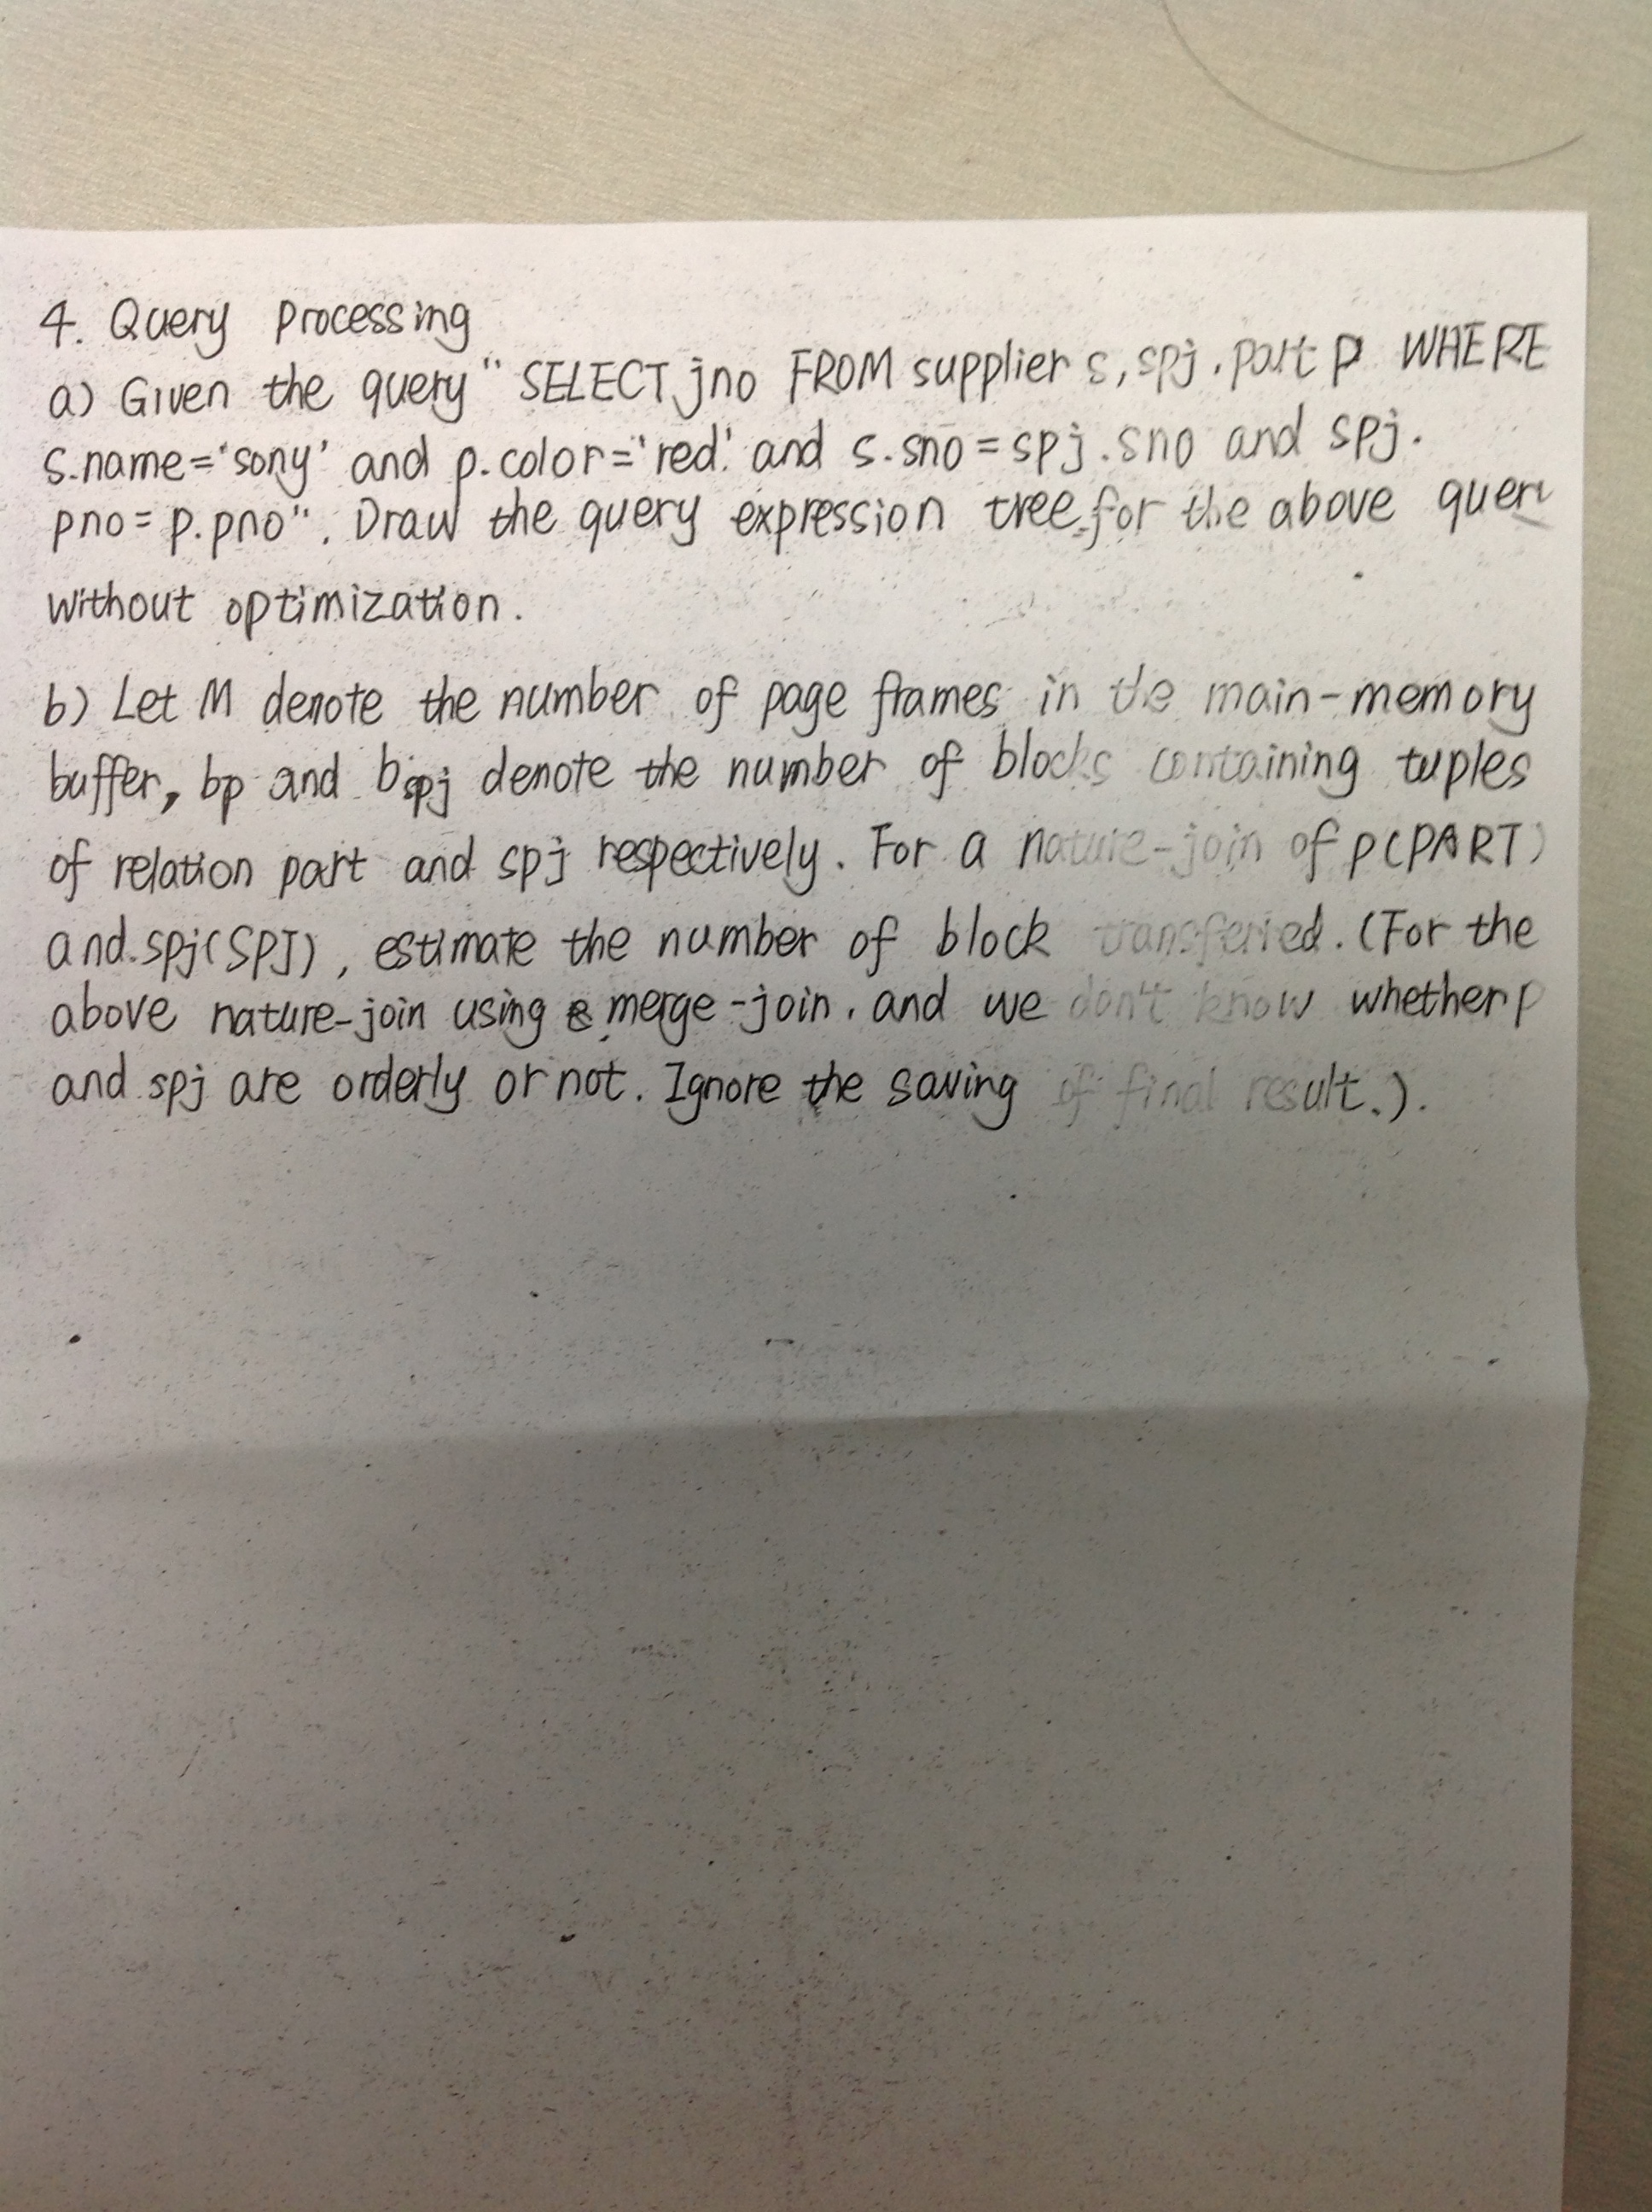 4. Query processing
a) Given the query " SELECT jno FROM supplier s, spj, part p WHERE
s.name='sony' and p.color='red' and s.sno = spj.sno and spj.
pno = p.pno". Draw the query expression tree for the above query
without optimization.
b) Let M denote the number of page frames in the main-memory
buffer, bp and bspj denote the number of blocks containing tuples
of relation part and spj respectively. For a nature-join of p(PART)
and spj(SPJ), estimate the number of block transferred. (For the
above nature-join using merge-join, and we don't know whether p
and spj are orderly or not. Ignore the saving of final result.).